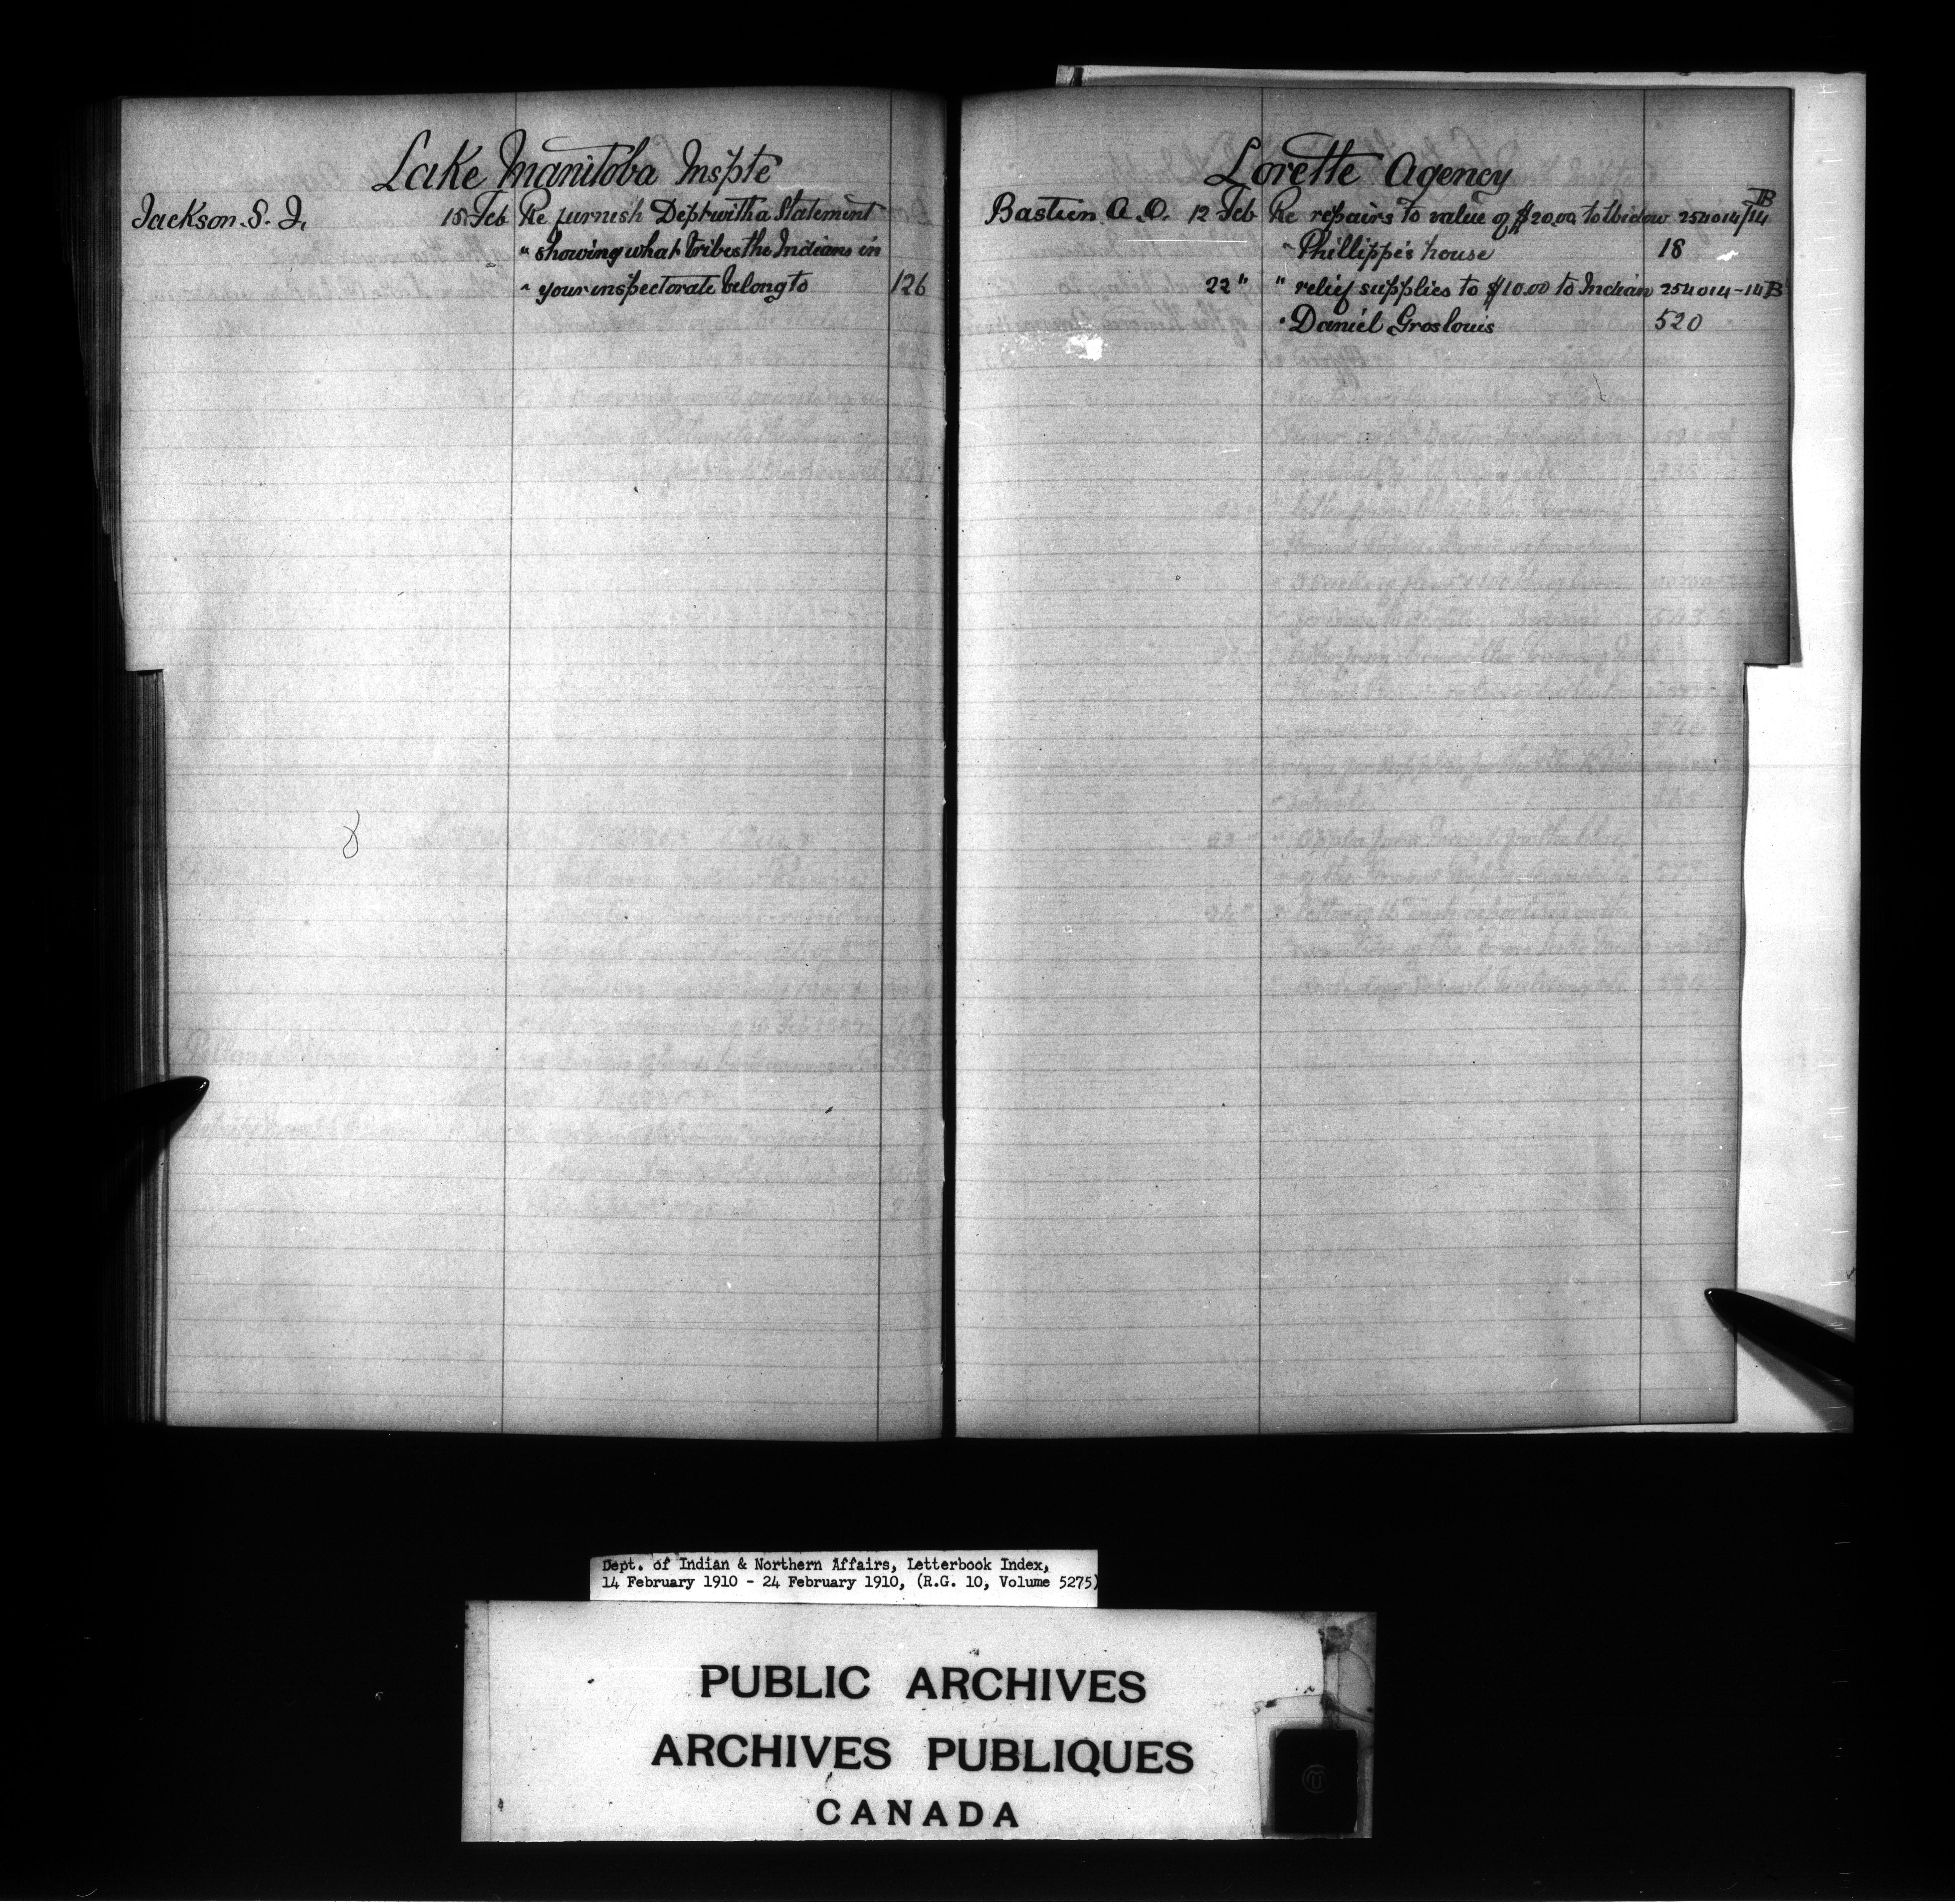 Lake Manitoba Inspte
Jackson. S. J. 15 Feb Re furnish Dept with a Statement
" showing what Tribes the Indians in
" your inspectorate belong to 126
Lorette Agency
Bastien A. O. 12 Feb Re repairs to value of $20.00 to Widow 254014/14 B
" Phillippe's house 18
22 " " relief supplies to $10.00 to Indian 254014-14B
" Daniel Groslouis 520
Dept. of Indian & Northern Affairs, Letterbook Index,
14 February 1910 - 24 February 1910, (R.G. 10, Volume 5275)
PUBLIC ARCHIVES
ARCHIVES PUBLIQUES
CANADA